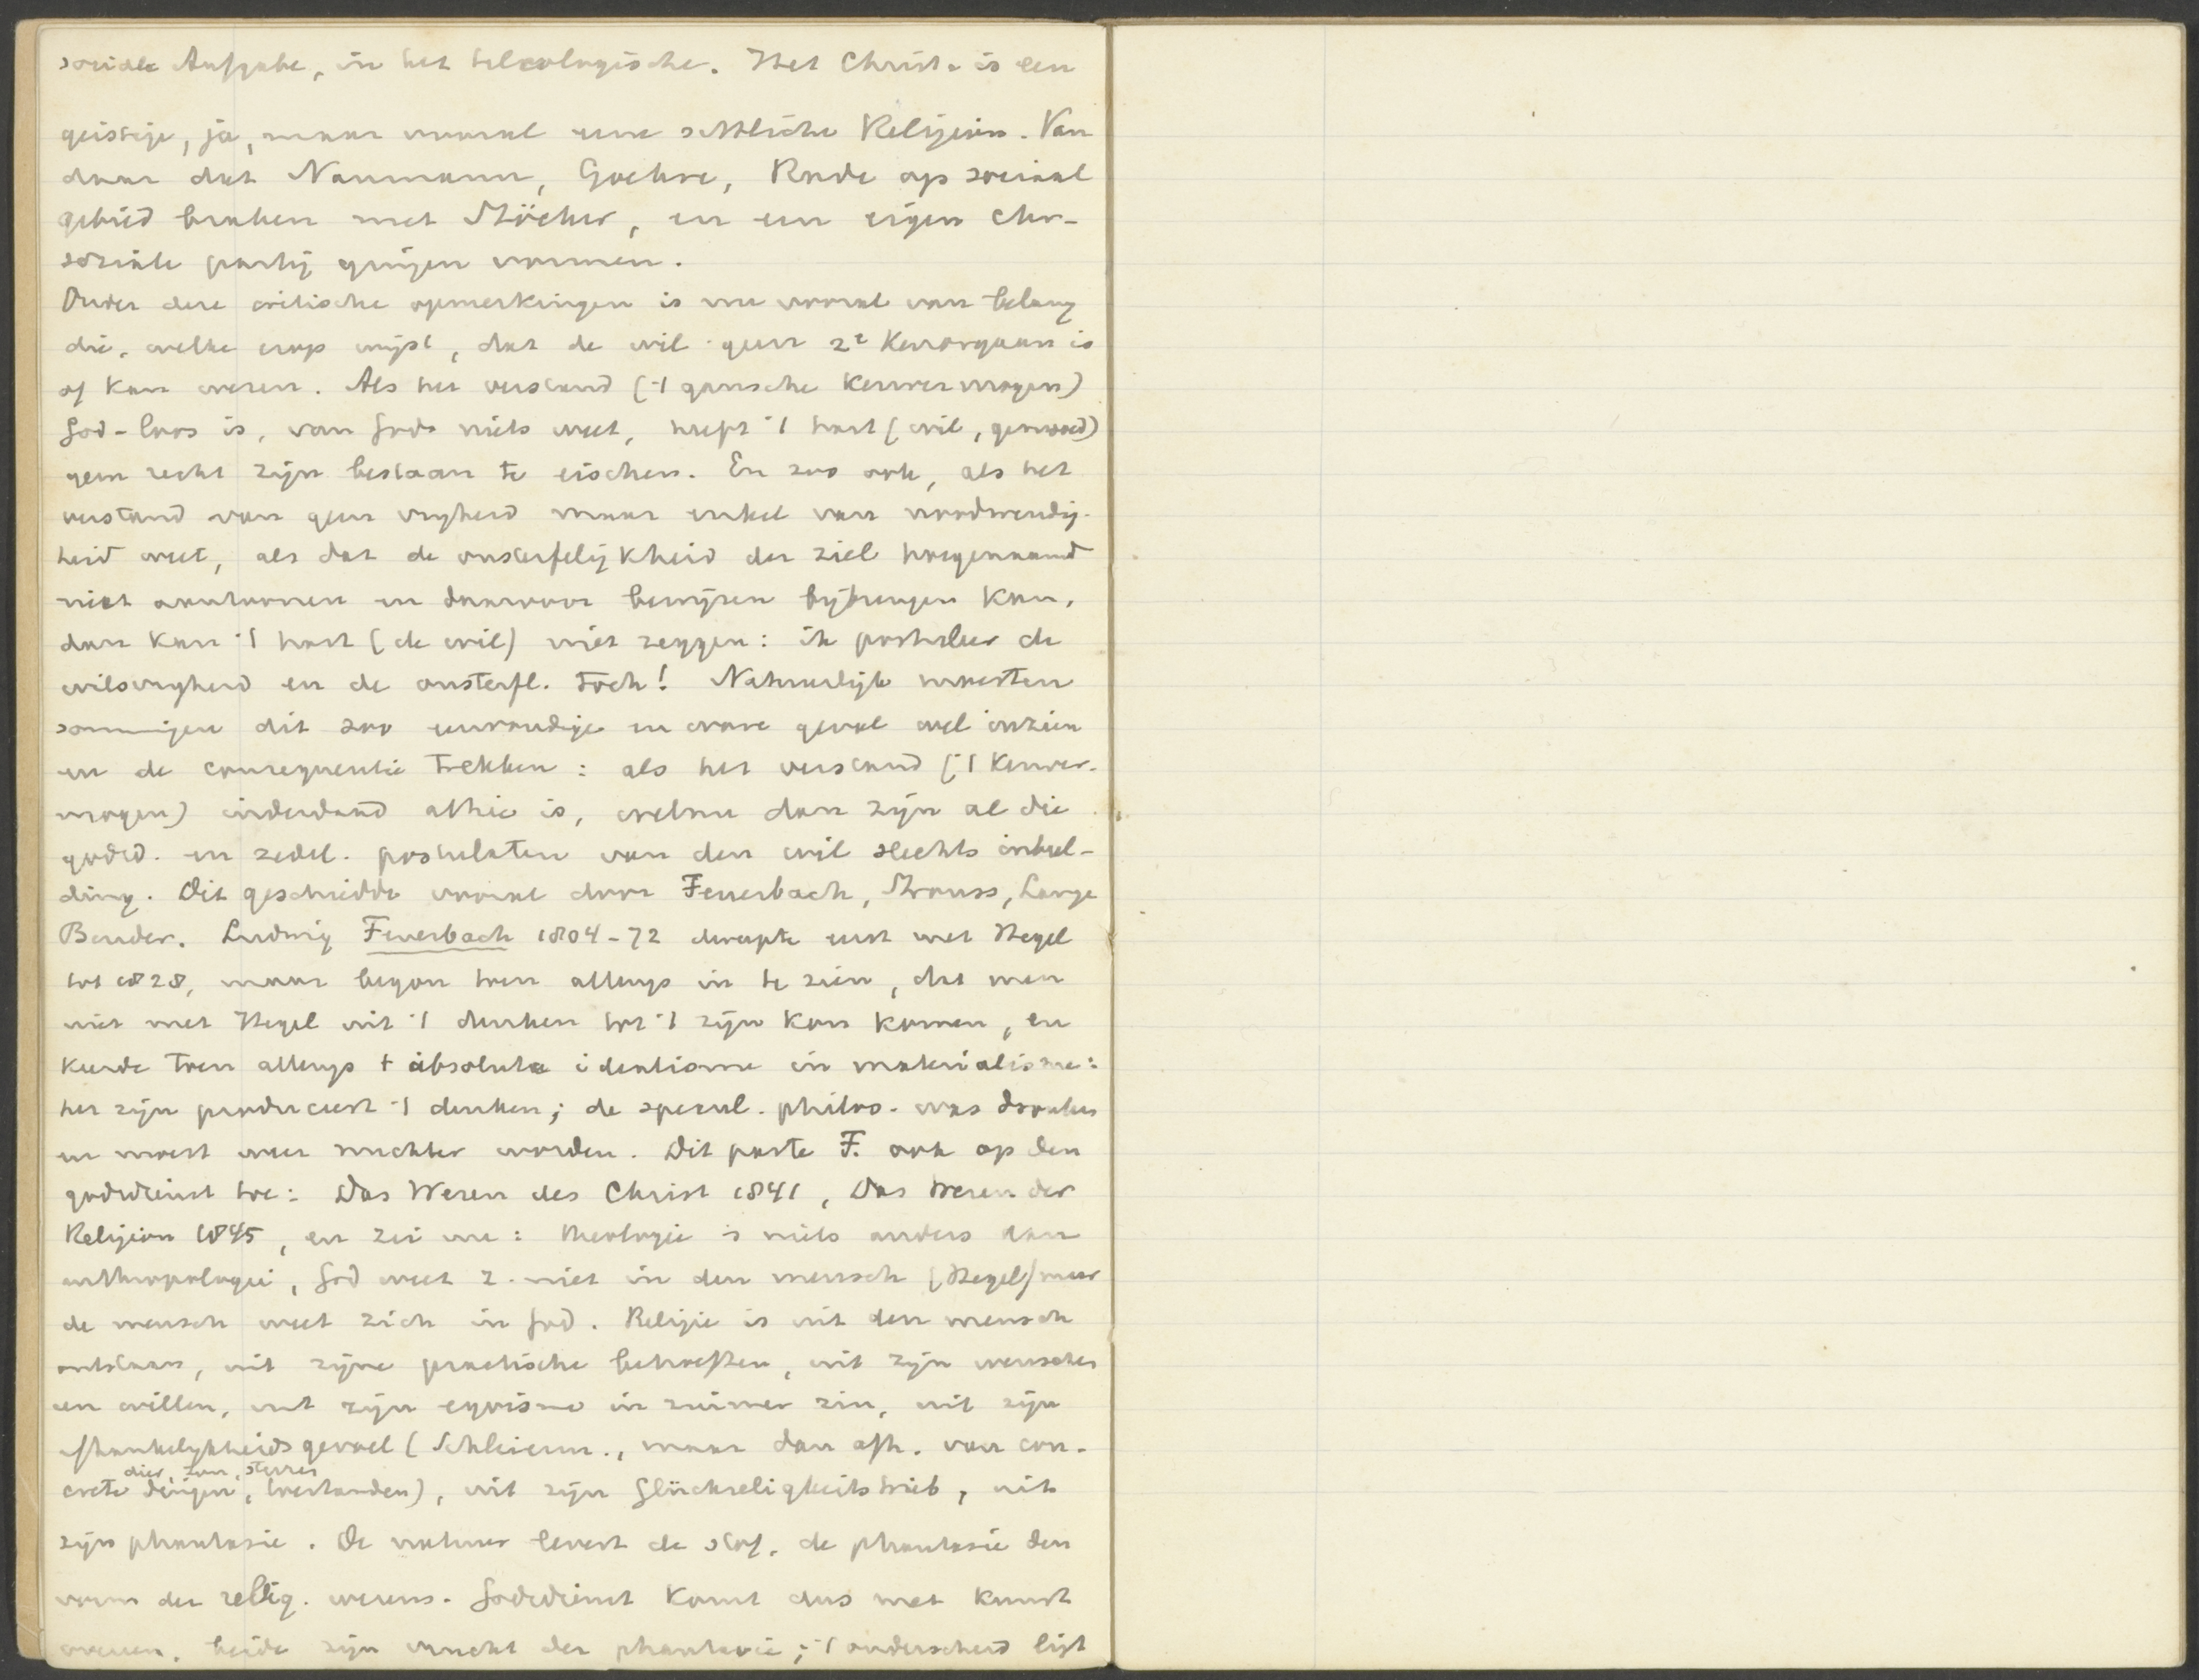 sociale Aufgabe, in het teleologische. Het Christ. is een
geistige, ja, maar vooral eene sittliche Religion. Van
daar dat Naumann, Goehre, Rade op sociaal
gebied braken met Stöcker, en een eigen chr-
sociale partij gingen vormen.
Onder deze critische opmerkingen is nu vooral van belang
die, welke erop wijst, dat de wil geen 2e Kenorgaan is
of kan wezen. Als het verstand (’t gansche Kenvermogen)
God-loos is, van God niets weet, heeft ’t hart (wil, gemoed)
geen recht zijn bestaan te eischen. En zoo ook, als het
verstand van geen vrijheid maar enkel van noodwendig-
heid weet, als dat de onsterfelijkheid der ziel hoegenaamd
niet aantoonen en daarvoor bewijzen bijbrengen kan,
dan kan ’t hart (de wil) niet zeggen: ik postuleer de
wilsvrijheid en de onsterfl. toch! Natuurlijk moesten
sommigen dit zoo eenvoudige en ware geval wel inzien
en de consequentie trekken: als het verstand (’t Kenver-
mogen) inderdaad atheis is, welnu dan zijn al die
godsd. en zedel. postulaten van den wil slechts inbeel-
ding. Dit geschiedde vooral door Feuerbach, Strauss, Lange
Bender. Ludwig Feuerbach 1804-72 dweepte eerst met Hegel
tot 1828, maar begon toen allengs in te zien, dat men
niet met Hegel uit ’t denken tot ’t zijn kon komen, en
keerde toen allengs ’t absolute idealisme in materialisme:
het zijn produceert ’t denken; de specul. philos. was dronken
en moest weer nuchter worden. Dit paste F. ook op den
godsdienst toe: Das Wesen des Christ 1841, Das Wesen der
Religion 1845, en zei nu: theologie is niets anders dan
anthropologie, God weet z. niet in den mensch (Hegel) maar
de mensch weet zich in God. Religie is uit den mensch
ontstaan, uit zijne practische behoeften, uit zijn wenschen
en willen, uit zijn egoisme in ruimer zin, uit zijn
afhankelijkheidsgevoel (Schleierm., maar dan afh. van con-
dier, zon, sterren
crete dingen, toestanden), uit zijn Glückseligkeitstrieb, uit
zijn phantasie. De natuur levert de stof, de phantasie den
vorm der relig. wezens. Godsdienst komt dus met kunst
overeen, beide zijn vrucht der phantasie; ’t onderscheid ligt